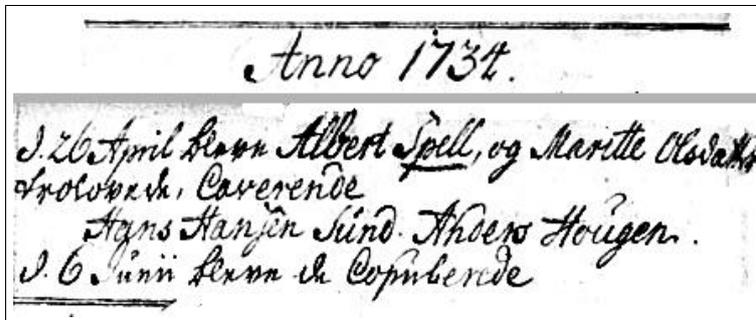 Anno 1734.
D. 26 April bleve Albert Spell, og Maritte Olsdatter
trolovede, Caverende
Hans Hansen Sünd. Anders Hougen.
D. 6 Junii bleve de Copulerede